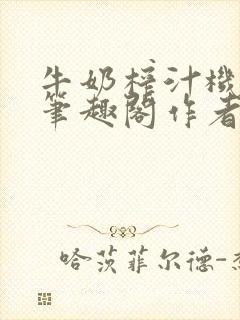 牛奶榨汁機
筆趣閣作者
哈茨菲尔德-杰